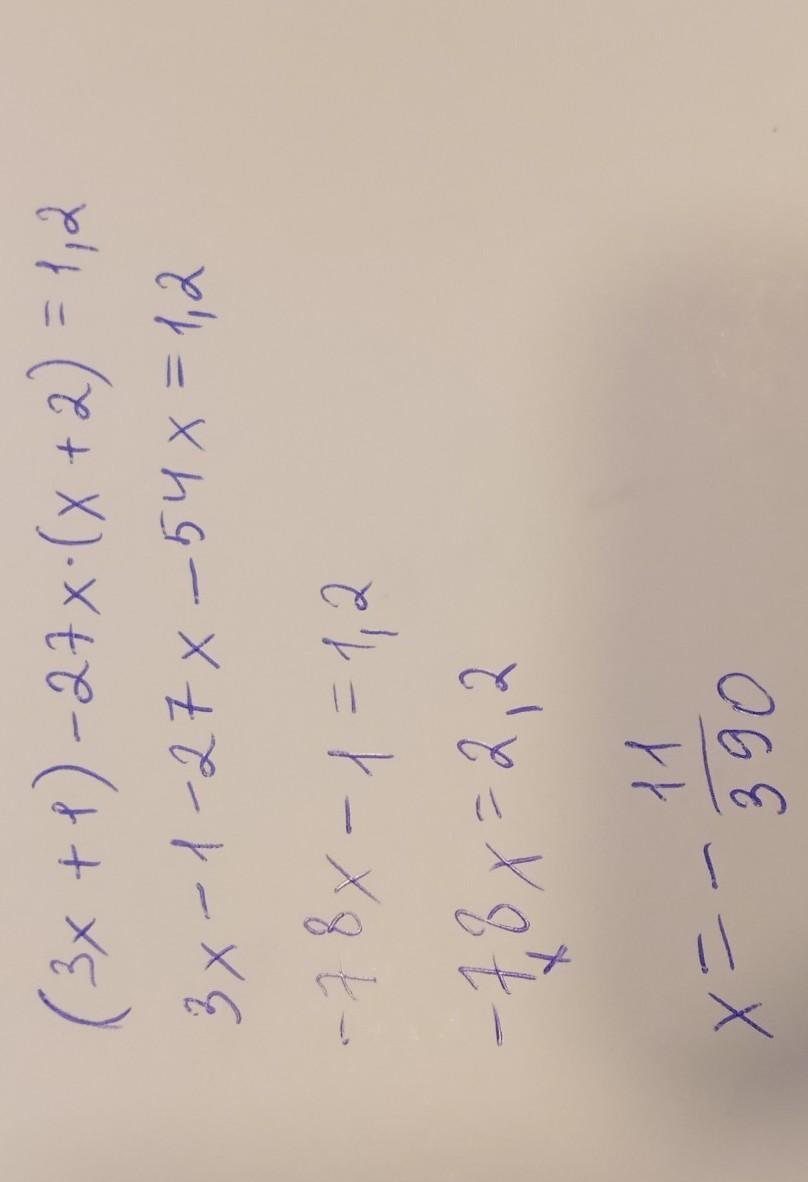 (3x + 1) - 27x · (x + 2) = 1,2
3x - 1 - 27x - 54x = 1,2
-78x - 1 = 1,2
-78x = 2,2
x
x = - 11/390